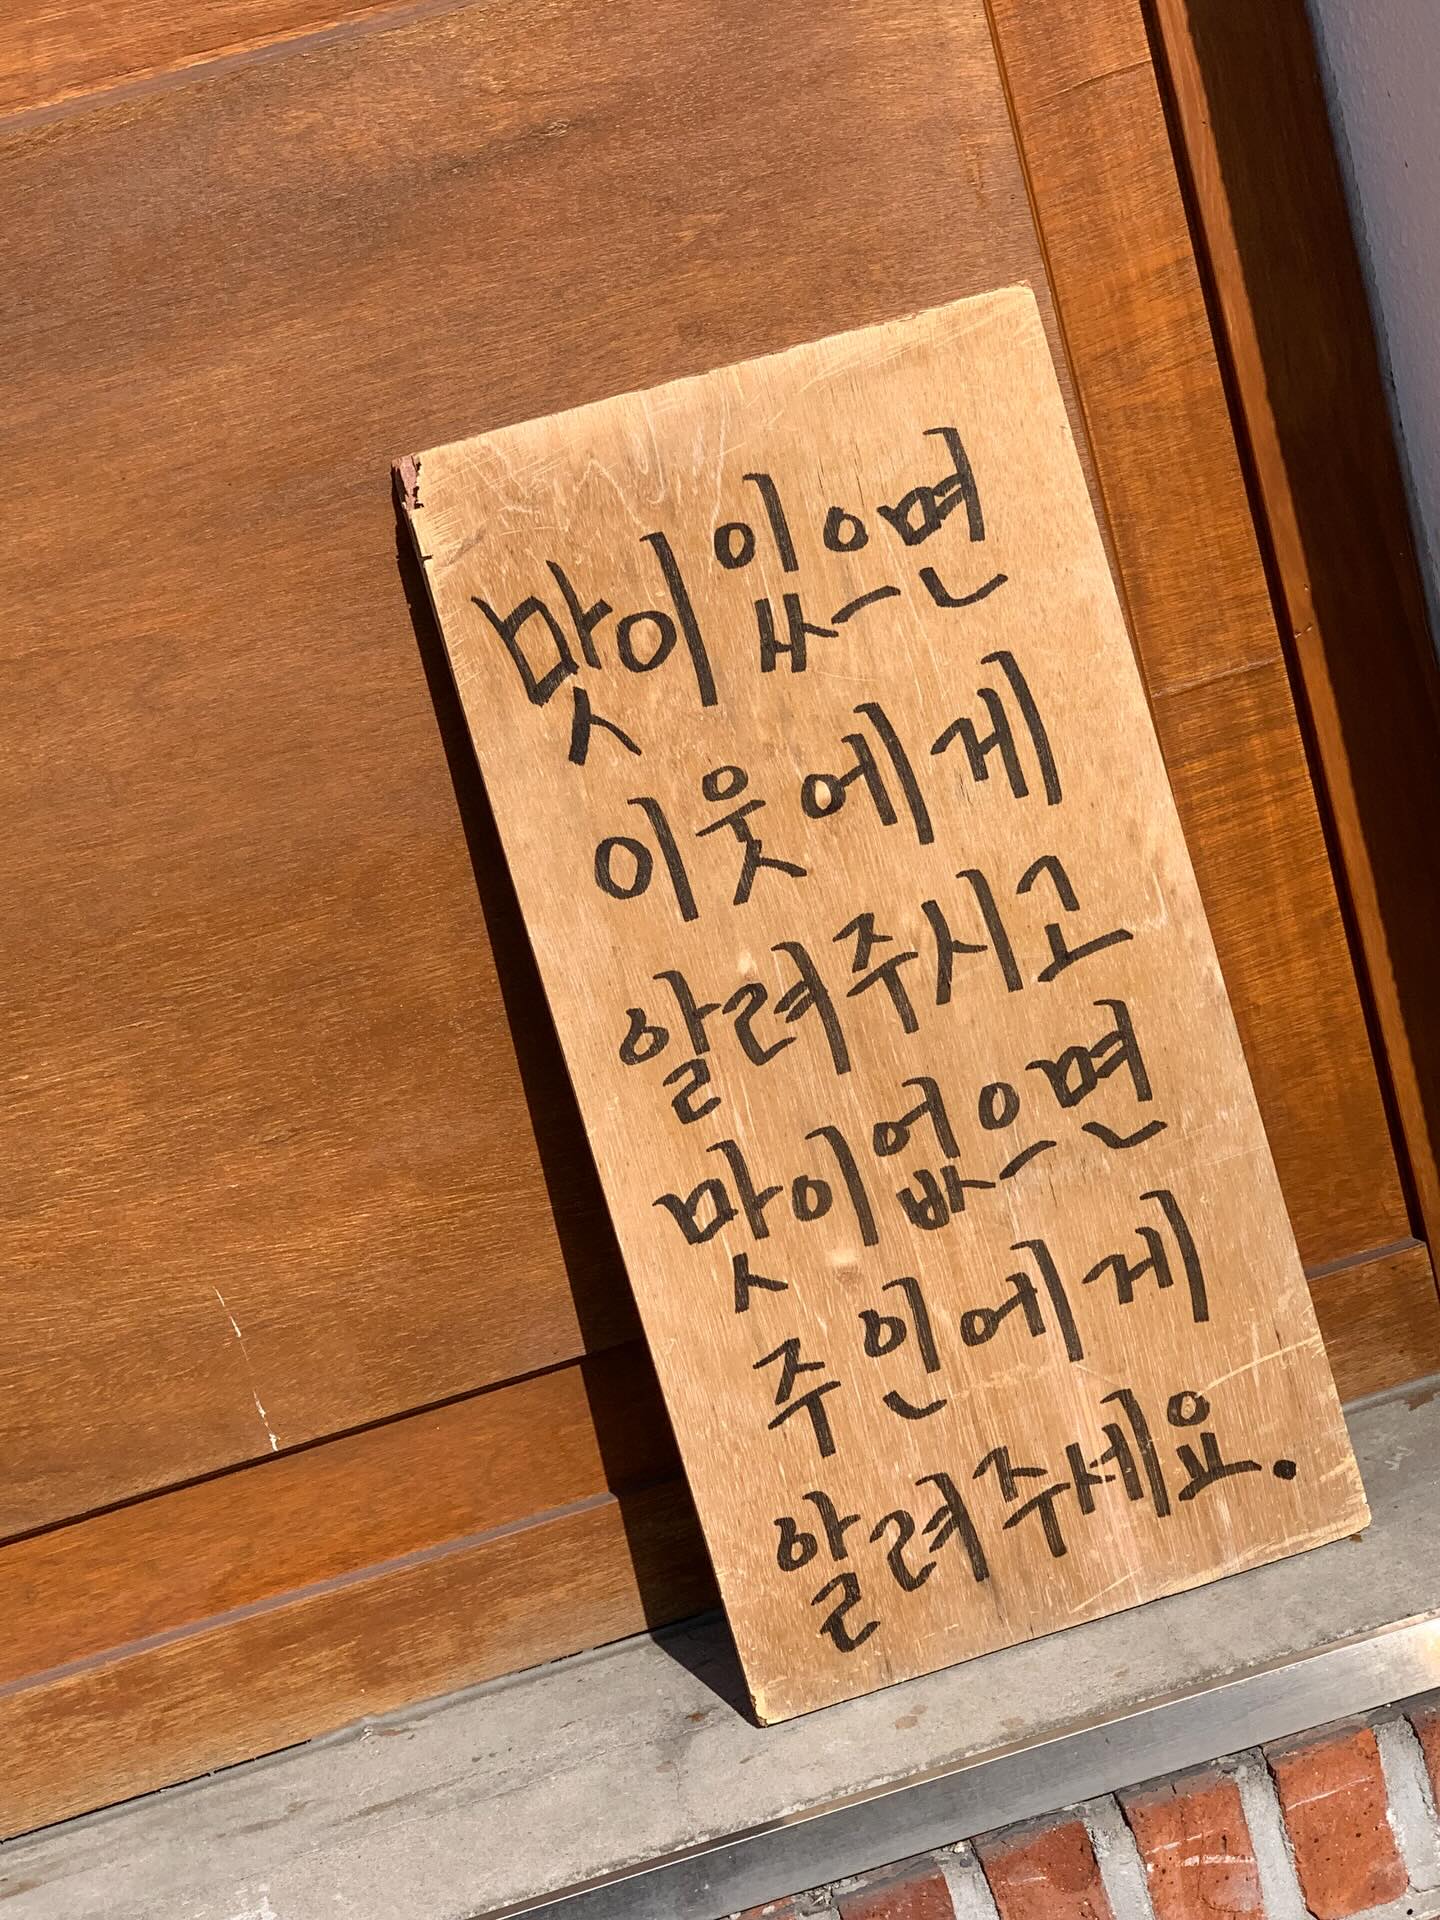 맛이 있으면
이웃에게
알려주시고
맛이 없으면
주인에게
알려주세요.